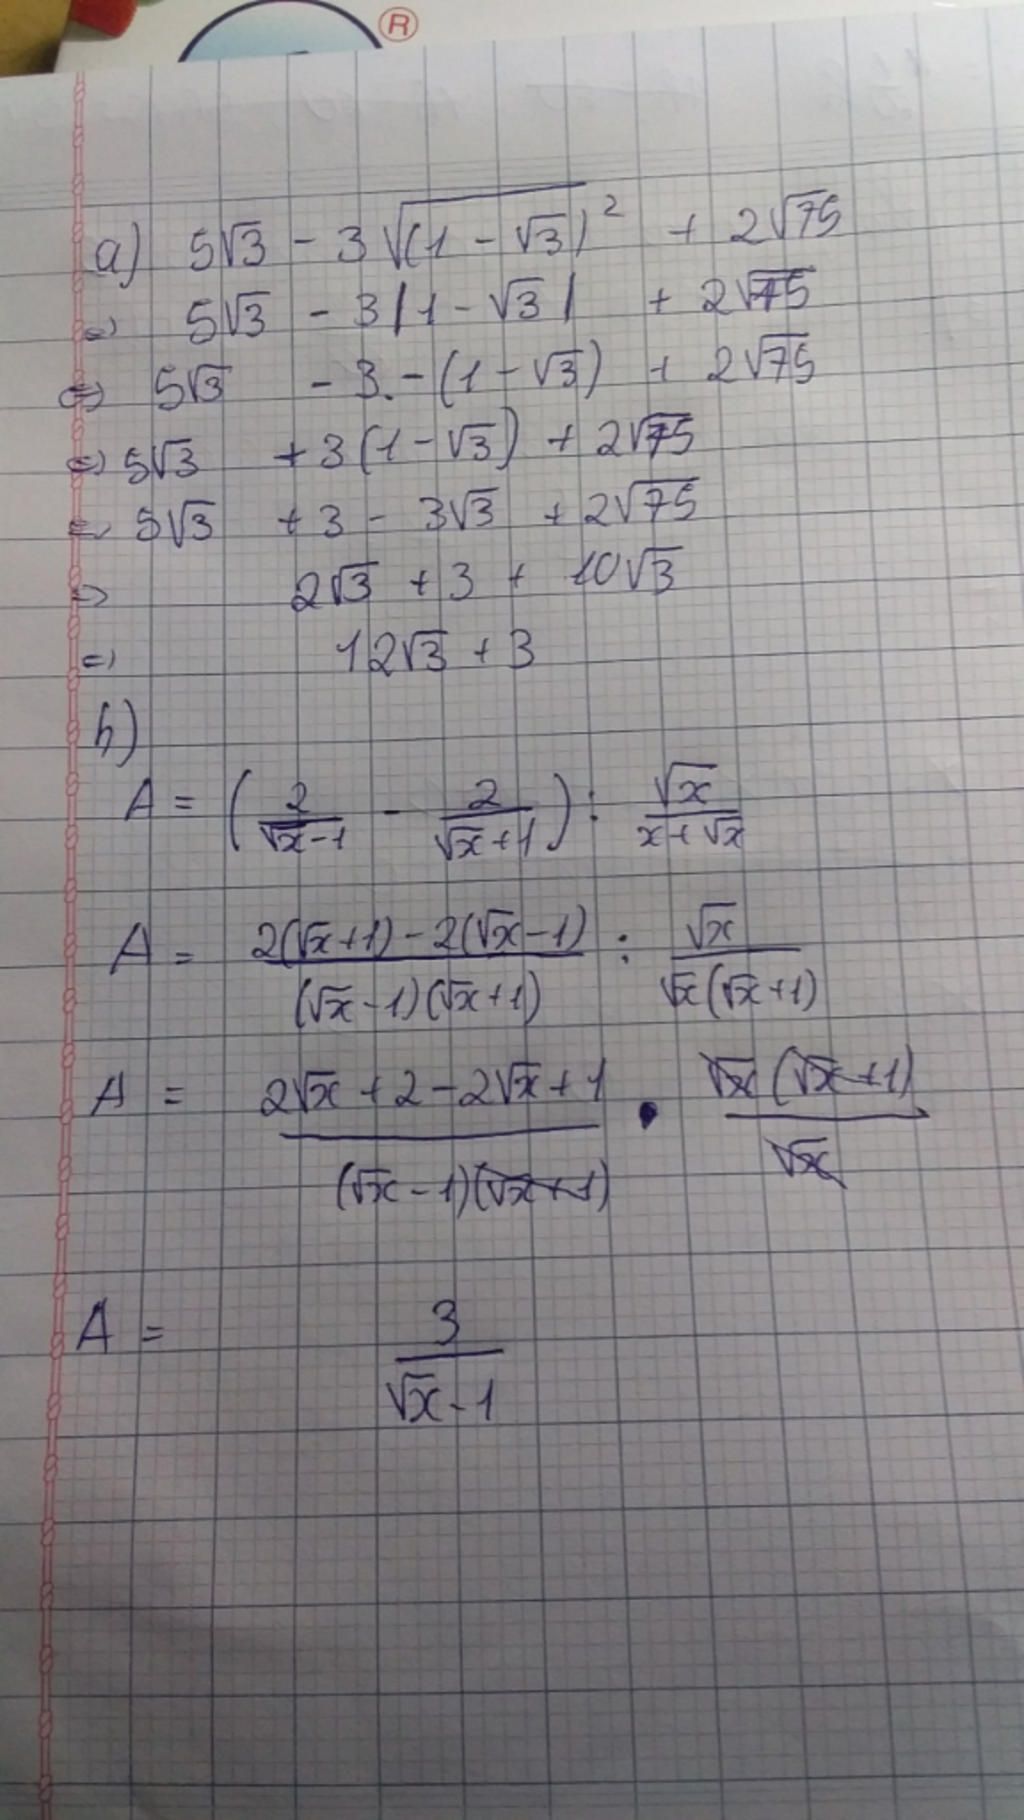 ®
a) 5√3 - 3√(1 - √3)² + 2√75
⇔ 5√3 - 3|1 - √3| + 2√75
⇔ 5√3 - 3. -(1 - √3) + 2√75
⇔ 5√3 + 3(1 - √3) + 2√75
⇔ 5√3 + 3 - 3√3 + 2√75
⇔ 2√3 + 3 + 10√3
⇔ 12√3 + 3
b)
A = (2/(√x - 1) - 2/(√x + 1)) : √x/(x + √x)
A = (2(√x + 1) - 2(√x - 1))/((√x - 1)(√x + 1)) : √x/(√x(√x + 1))
A = (2√x + 2 - 2√x + 1)/((√x - 1)(√x + 1)) . √x(√x + 1)/√x
A = 3/(√x - 1)